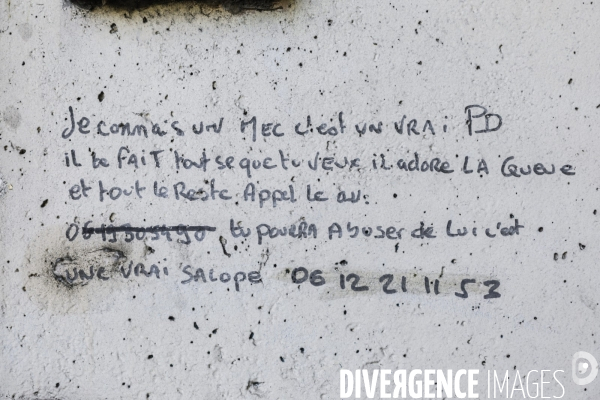 Je connais UN MEC c'est UN VRAi PD
il te FAiT tout se que tu VEUX il adore LA Queue
et tout le Reste. Appel le au.
tu pourRA Abuser de Lui c'est
UNE VRAi SALOPE 06 12 21 11 53
DIVERGENCE IMAGES D